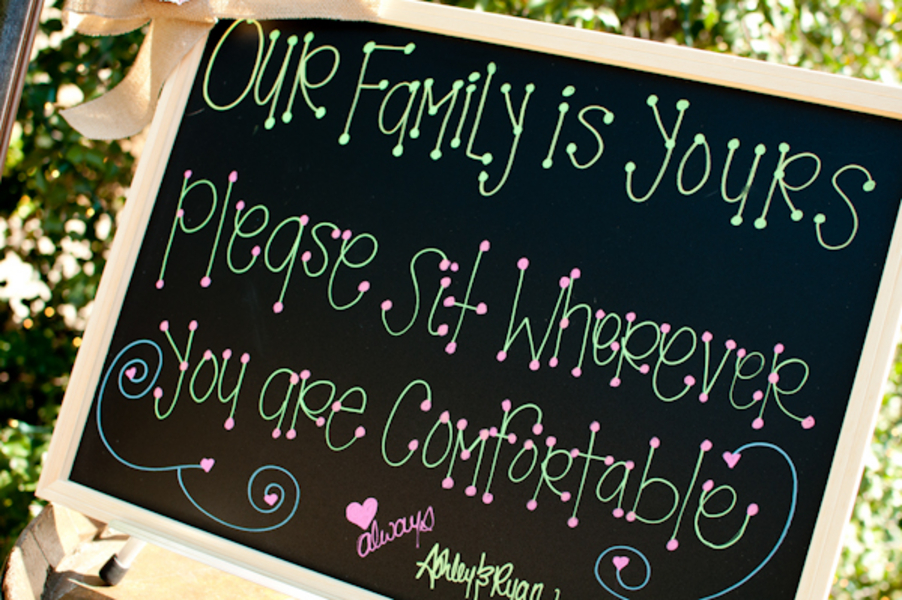 Our Family is Yours
Please Sit Wherever
You are Comfortable
always
Ashley & Ryan